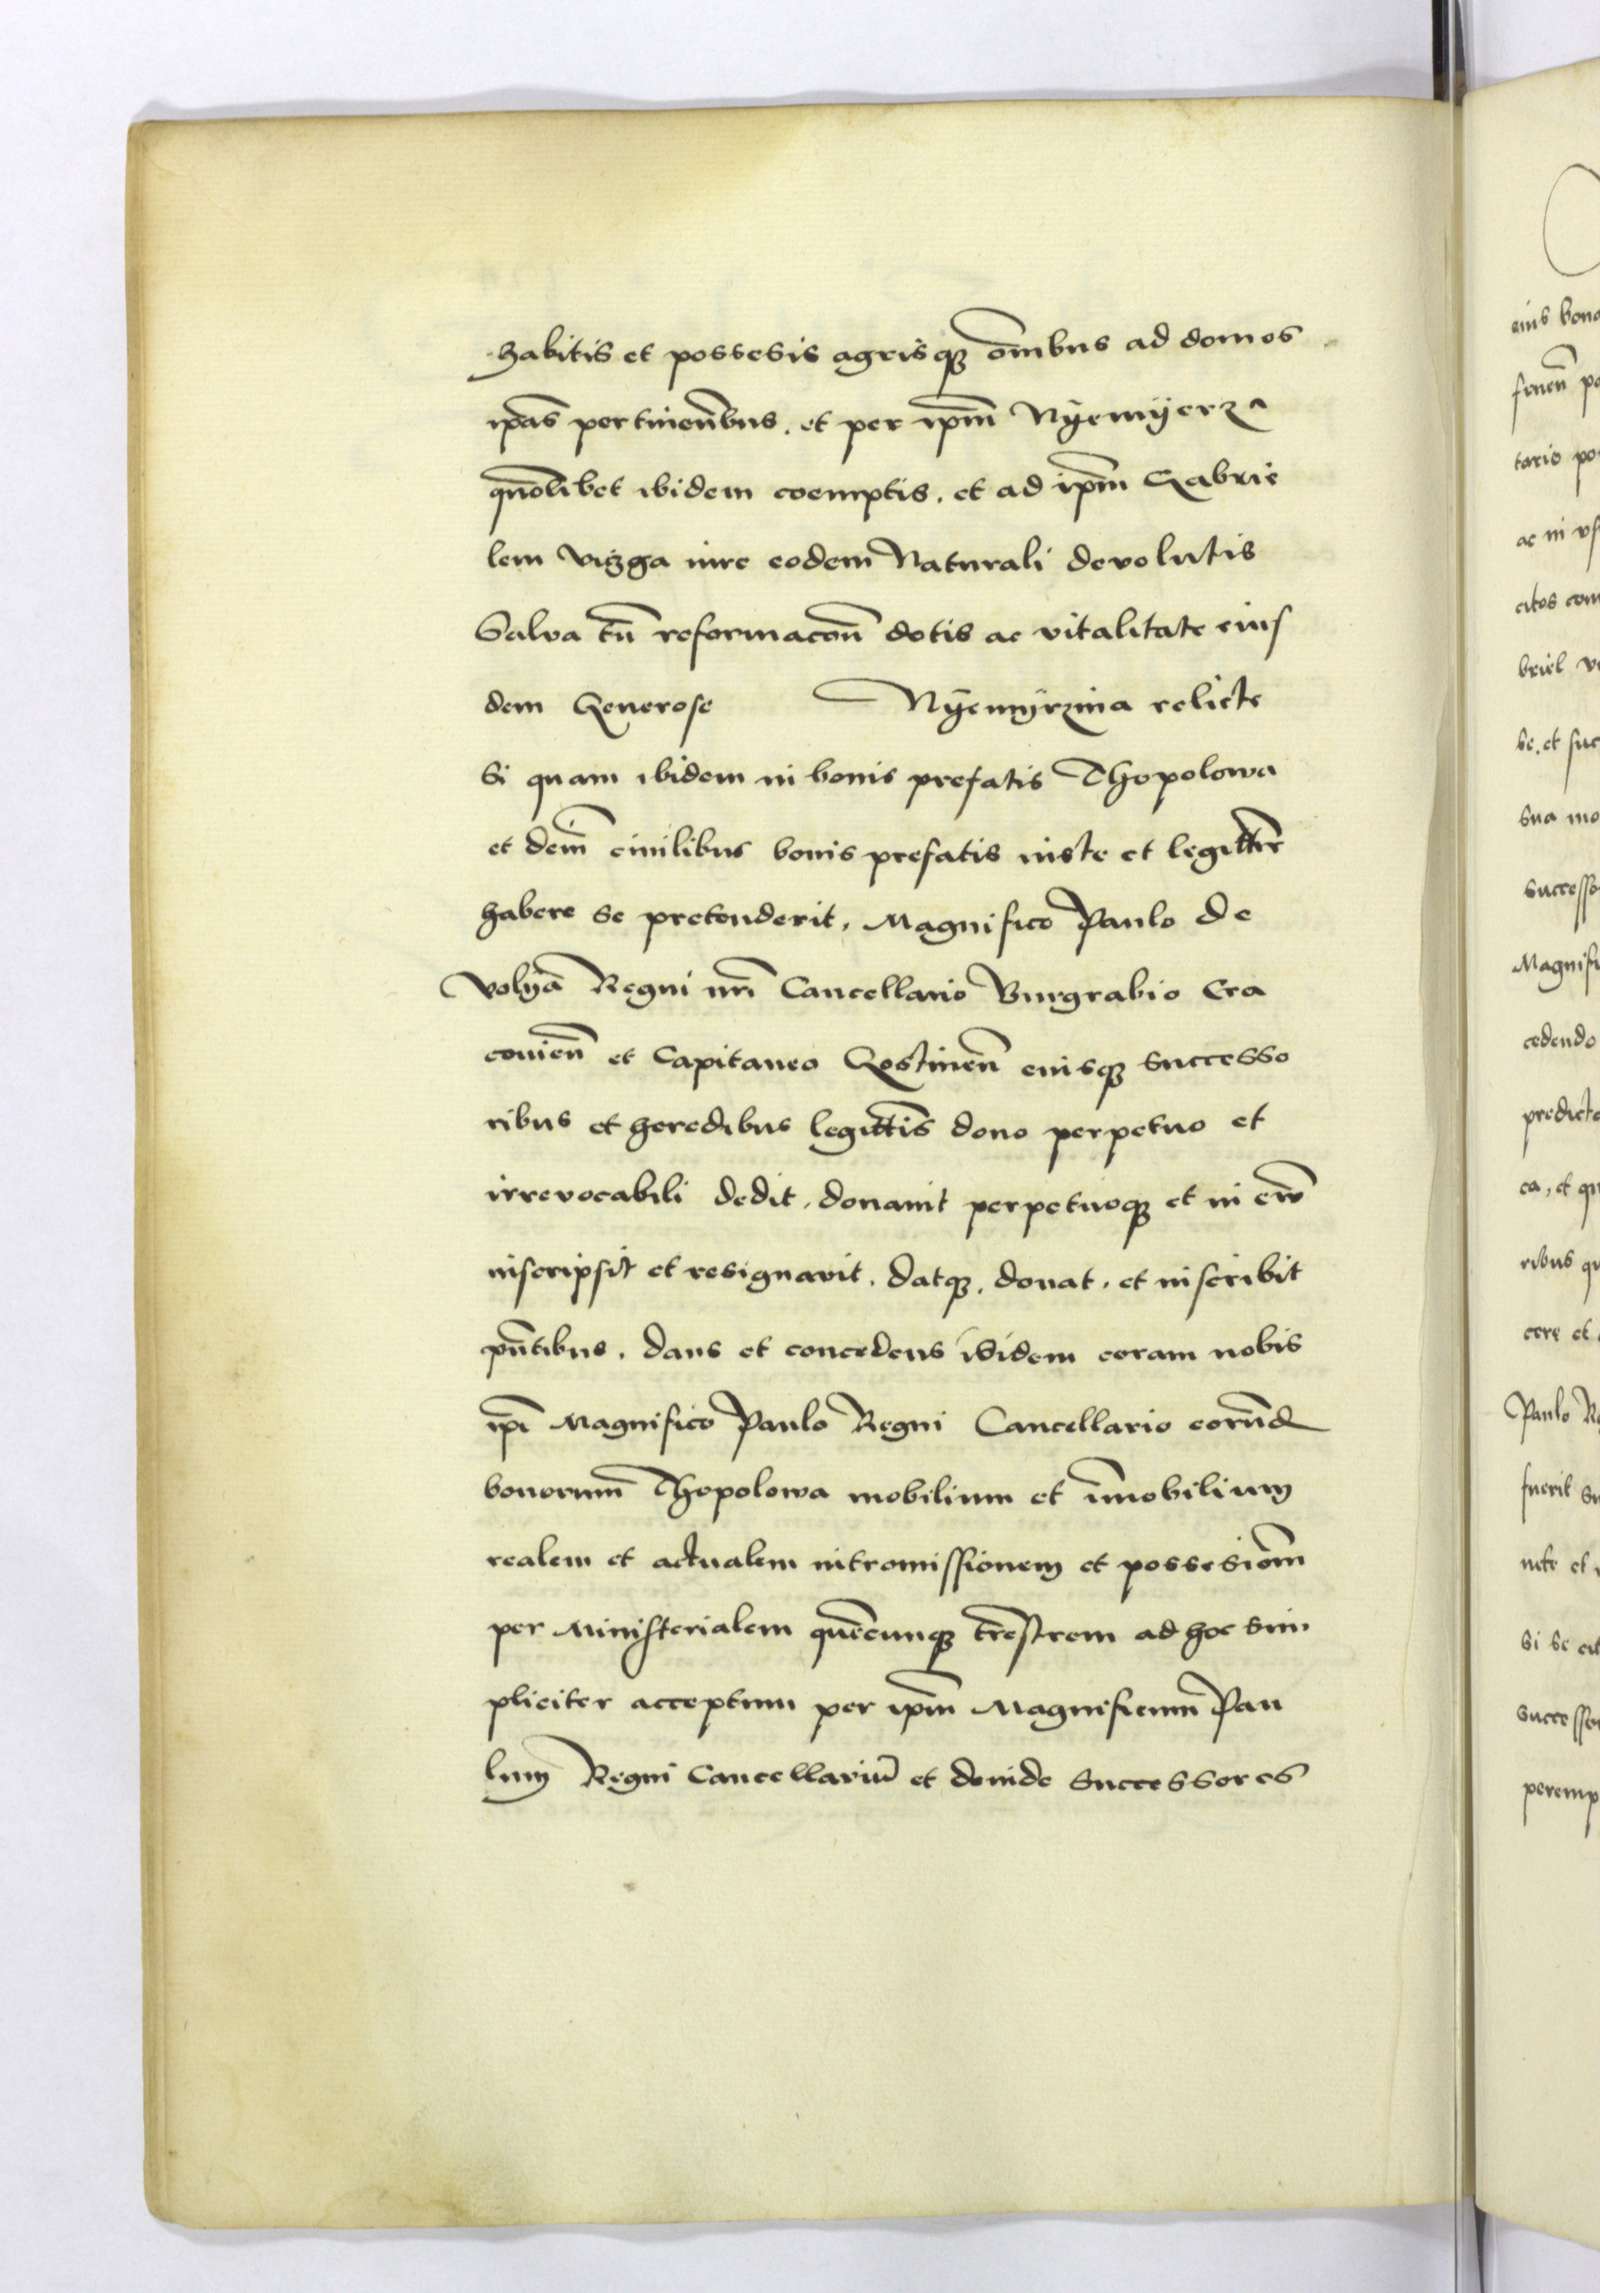 habitis et possesis agrisq₃ om̄ibus ad domos
ip̄as pertinen̄bus . et per ip̄m Nÿemÿerza
quōlibet ibidem coemptis . et ad ip̄m Gabrie
lem Vizga iure eodem Naturali devolutis
Salva tn̄ reformacōn̄ dotis ac vitalitate eius
dem Generose Nÿemÿrzina relicte
Si quam ibidem in bonis prefatis Thopolowa
et dein̄ civilibus bonis prefatis iuste et legittīe
habere se pretenderit , Magnifico Paulo de
Volÿa Regni nr̄i Cancellario Burgrabio Cra
covien̄ et Capitaneo Gostinen̄ eiusq₃ Successo
ribus et heredibus legittīs dono perpetuo et
irrevocabili dedit , donauit perpetuoq₃ et in ew̄
inscripsit et resignavit . datq₃ . donat . et inscribit
pn̄tibus . dans et concedens ibidem coram nobis
ip̄i Magnifico Paulo Regni Cancellario eorūd
bonorum Thopolowa mobilium et īmobilium
realem et actualem intromissionem et possesiōm
per Ministerialem quēcunq₃ tr̄estrem ad hoc sim
pliciter acceptum per ip̄m Magnificum Pau
lum Regni Cancellariū et deinde Successores
eius bona
fruen̄
ac in
citos
briel
be . et suc
Sua mo
Successo
Magnifi
cedendo
predicte
ea , et
ribus
cere et
Paulo
fuerit
et
si se
Successo
peremp